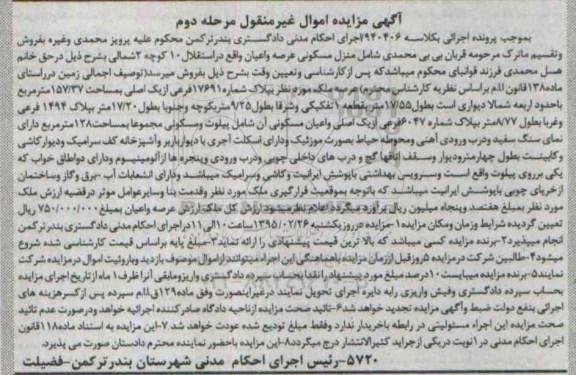 آگهی مزایده اموال غیرمنقول مرحله دوم
بموجب پرونده اجرائی بکلاسه ۹۴۰۴۰۶اجرای احکام مدنی دادگستری بندرترکمن محکوم علیه پرویز محمدی وغیره بفروش
وتقسیم ماترک مرحومه قربان بی بی محمدی شامل منزل مسکونی عرصه واعیان واقع دراستقلال ۱۰ کوچه ۲شمالی بشرح ذیل درحق خانم
هسل محمدی فرزند قوانبای محکوم میباشدکه پس ازکارشناسی وتعیین وقت بشرح ذیل بفروش میرسد(توصیف اجمالی زمین درراستای
ماده۱۳۸قانون ا.ا.م براساس نظریه کارشناس محترم عرصه ملک مورد نظر بپلاک شماره۱۷۶۹۱فرعی ازیک اصلی بمساحت۱۵۷/۳۷مترمربع
باحدود اربعه شمالا دیواری است بطول۱۷/۵۵متر بقطعه ۱تفکیکی وشرقا بطول۹/۲۵متربکوچه وجنوبا بطول۱۷/۲۰متر بپلاک ۱۴۹۴ فرعی
وغربا بطول۸/۷۷متر بپلاک شماره ۶۰۴۷فرعی ازیک اصلی واعیان مسکونی آن شامل پیلوت ومسکونی مجموعا بمساحت۱۳۸مترمربع دارای
نمای سنگ سفید ودرب ورودی آهنی ومحوطه حیاط بصورت موزائیک ودارای اسکلت آجری با دیوارباربر وآشپزخانه کف سرامیک ودیوارکاشی
وکابینت بطول چهارمترودیوار وسقف اتاقها گچ و درب های داخلی چوبی ودرب ورودی وپنجره ها ازآلومینیوم ودارای دواطاق خواب که
یکی برروی پیلوت واقع است وسرویس بهداشتی باپوشش ایرانیت وکاشی وسرامیک میباشد ودارای انشعابات آب -برق وگاز وساختمان
ازخرپای چوبی باپوشش ایرانیت میباشد که باتوجه بموقعیت قرارگیری ملک مورد نظر وقدمت بنا وسایرعوامل موثر درقضیه ارزش ملک
مورد نظر بمبلغ هفتصد وپنجاه میلیون ریال برآورد میگردد اعلام نظرمیشود ارزش کل ملک ارزش عرصه واعیان بمبلغ۷۵۰/۰۰۰/۰۰۰ ریال
تعیین گردیده شرایط وزمان ومکان مزایده۱-مزایده درروزیکشنبه ۱۳۹۵/۰۲/۲۶ساعت۱۰الی۱۱دراجرای احکام مدنی دادگستری بندرترکمن
انجام میپذیرد۲-برنده مزایده کسی میباشد که بالا ترین قیمت پیشنهادی را ارائه نماید۳-مبلغ پایه براساس قیمت کارشناسی شده شروع
میشود۴-طالبین شرکت درمزایده ۵روزقبل اززمان مزایده باهماهنگی این اجراء میتوانند ازاموال موصوف بازدید وباروئیت اموال درمزایده شرکت
نمایند۵-برنده مزایده میبایست۱۰درصد مبلغ مورد پیشنهاد رانقدا بحساب سپرده دادگستری واریزومابقی آنرا ظرف۱ماه ازتاریخ اجرای مزایده
بحساب سپرده دادگستری وفیش واریزی رابه دایره اجرای تحویل نمایند درغیراینصورت وفق ماده۱۳۹ق.ا.ام سپرده پس ازکسرهزینه های
اجرائی بنفع دولت ضبط وآگهی مزایده تجدید خواهد شد۶-تائید صحت مزایده ازناحیه دادگاه صادرکننده اجرائیه خواهد ودرصورت عدم تائید
صحت مزایده این اجراء مسئولیتی در رابطه باخریدار ندارد وفقط مبلغ تودیع شده عودت خواهد شد ۷-این مزایده به استناد ماده۱۱۸قانون
اجرای احکام مدنی در۱نوبت دریکی ازجراید کثیرالانتشار درج میگردد۸-این مزایده باحضور نماینده محترم دادستان صورت می پذیرد
۵۷۲۰-رئیس اجرای احکام مدنی شهرستان بندرترکمن-فضیلت